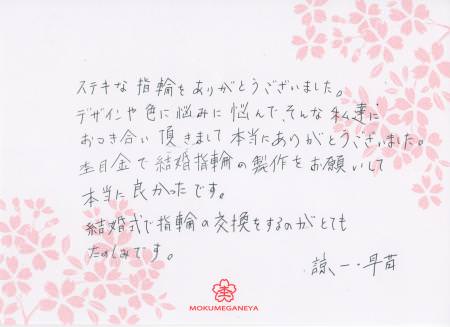 ステキな指輪をありがとうございました。
デザインや色に悩みに悩んで、そんな私達に
おつき合い頂きまして本当にありがとうございました。
杢目金で結婚指輪の製作をお願いして
本当に良かったです。
結婚式で指輪の交換をするのがとても
たのしみです。
諒一・早苗
MOKUMEGANEYA